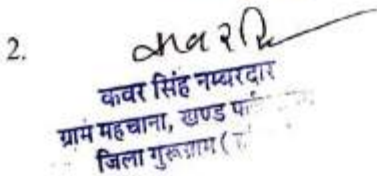 2.
कवर सिंह नम्बरदार
ग्राम महचाना, खण्ड
जिला गुरूग्राम (